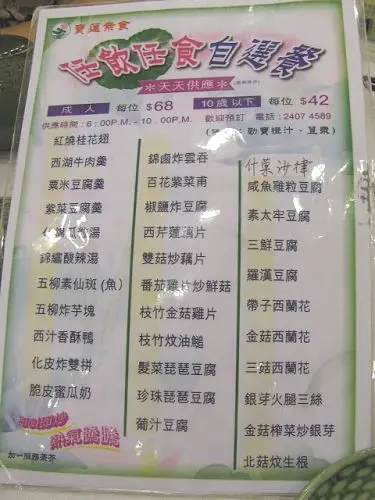 寶蓮素食
任飲任食自選餐
＊天天供應＊
成人 每位 $68 10歲以下 每位 $42
供應時間：6：00P.M. - 10．00P.M. 歡迎預訂 電話：2407 4589
勁寶橙汁、豆漿)
紅燒桂花翅
西湖牛肉羹
粟米豆腐羹
紫菜豆腐羹
瓜湯
錦繡酸辣湯
五柳素仙斑 (魚)
五柳炸芋塊
西汁香酥鴨
化皮炸雙拼
脆皮蜜瓜奶
錦鹵炸雲吞
百花紫菜甫
椒鹽炸豆腐
西芹蓮藕片
雙菇炒藕片
番茄雞片炒鮮菇
枝竹金菇雞片
枝竹炆油鎚
髮菜琵琶豆腐
珍珠琵琶豆腐
葡汁豆腐
什菓沙律
咸魚雞粒豆腐
素太牢豆腐
三鮮豆腐
羅漢豆腐
帶子西蘭花
金菇西蘭花
三菇西蘭花
銀芽火腿三絲
金菇榨菜炒銀芽
北菇炆生根
即叫即炒
熱氣騰騰
加一服務茶芥